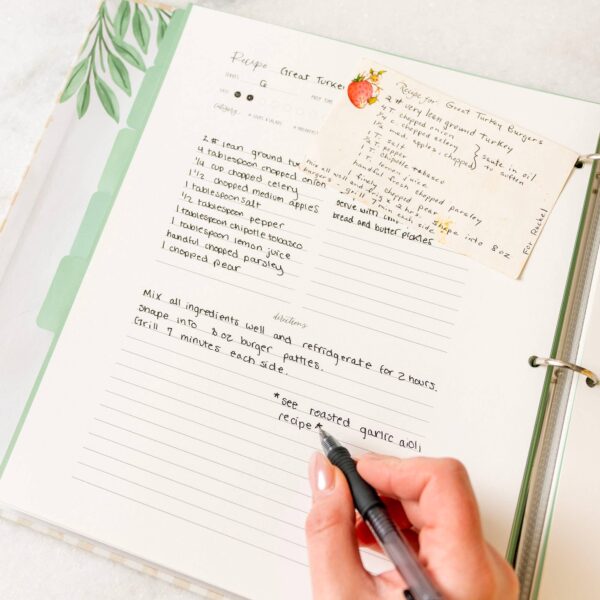 Recipe Great Turke
SERVES 6
PREP TIME
Category
2 # lean ground tu
4 tablespoon chopped onion
1/4 cup chopped celery
1 1/2 chopped medium apples
1 tablespoon salt
1/2 tablespoon pepper
1 tablespoon chipotle tobasco
1 tablespoon lemon juice
handful chopped parsley
1 chopped pear
serve with
bread and butter pickles
directions
Mix all ingredients well and refridgerate for 2 hours.
Shape into 8 oz burger patties.
Grill 7 minutes each side.
*see roasted garlic aioli
recipe*
Recipe for: Great Turkey Burgers
2 # very lean ground Turkey
4 T. chopped onion
1/4 c. chopped celery
1 1/2 med. apples, chopped
saute in oil
to soften
1 T. salt
T. pepper
T. chipotle tobasco
1 T. lemon juice
handful fresh chopped parsley
1 finely chopped pear
mix all well and
2 hrs. Shape into 8 oz
burgers
grill 7 min each side
For Rachel